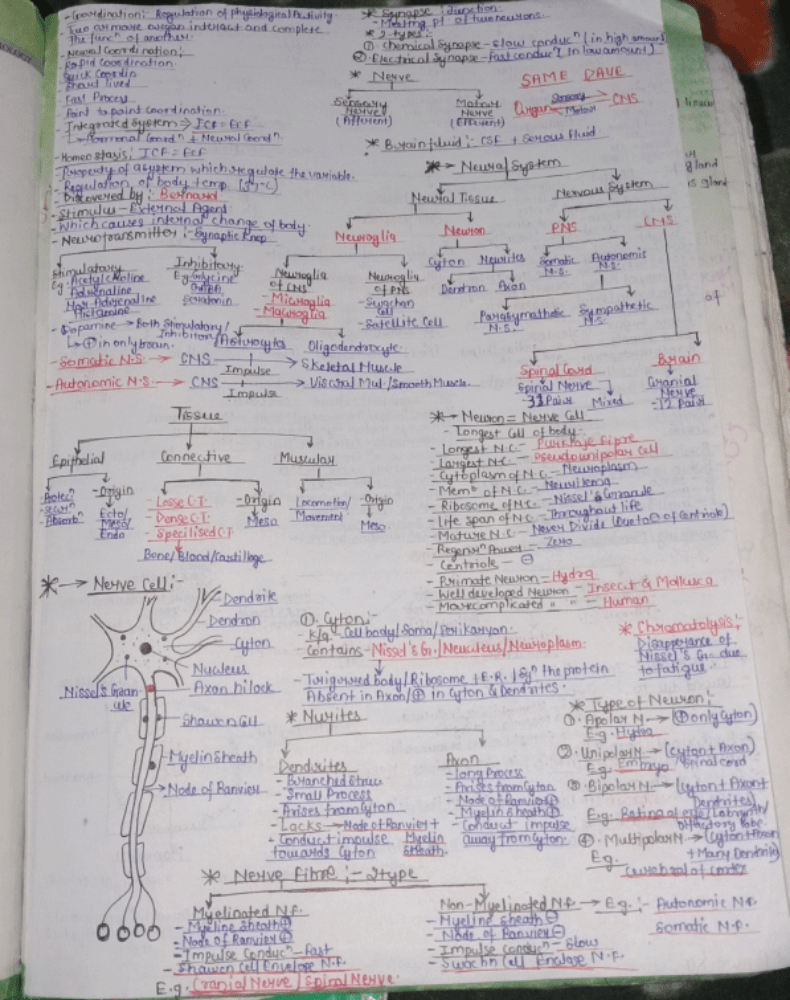 - Coordination:- Regulation of physiological Activity.
- Two or more organ interact and complete
The funcⁿ of another.
- Neural Coordination:
- Rapid Coordination
- Quick Coordin
- Short lived
- Fast Process
- Point to point coordination.
- Integrated System → ICF = ECF
↳ Hormonal Coordⁿ + Neural Coordⁿ
- Homeostasis: ICF = ECF
- Property of a system which regulate the variable.
- Regulation of body temp.
- Discovered by: Bernard
- Stimulus - External Agent
- Which causes internal change of body.
- Neurotransmitter:- Synaptic Knob
Stimulatory
Eg: Acetylcholine
Adrenaline
Nor Adrenaline
Histamine
Inhibitory
Eg: Glycine
GABA
Serotonin
- Dopamine → Both Stimulatory/
Inhibitory
↳ ⊕ in only brain.
- Somatic N.S. → CNS → Skeletal Muscle
Impulse
- Autonomic N.S. → CNS → Visceral Mul./Smooth Muscle.
Impulse
* Synapse: Junction:
- Meeting pt of two neurons.
* 2-types:
① Chemical Synapse - slow conducⁿ (in high amount)
② Electrical Synapse - fast conducⁿ (in low amount)
* Nerve
Sensory
Nerve
(Afferent)
Motor
Nerve
(Efferent)
SAME DAVE
Organ Sensory CNS
Motor
* Brain fluid:- CSF + Serous Fluid
* → Neural System
Neural Tissue
Nervous System
Neuroglia
Neuron
PNS
CNS
Cyton
Neurites
Somatic
N.S.
Autonomic
N.S.
Dendron
Axon
Parasymathetic
N.S.
Sympathetic
N.S.
Neuroglia
of CNS
- Microglia
- Macroglia
Neuroglia
of PNS
- Swachan
Cell
- Satellite Cell
Astrocytes
Oligodendrocyte
Spinal Cord
Spinal Nerve
- 31 Pair
Mixed
Brain
Cranial
Nerve
- 12 Pair
Tissue
Epithelial
Connective
Muscular
- Protecⁿ
- Secrⁿ
- Absorbⁿ
- Origin
Ecto/
Meso/
Endo
- Losse C.T.
- Dense C.T.
- Specilised C.T.
- Origin
Meso
Bone/Blood/Cartillage
Locomotion/
Movement
- Origin
Meso
* → Neuron = Nerve Cell
- Longest Cell of body-
- Longest N.C. - Purkinje Fipre
- Largest N.C. - Pseudounipolar Cell
- Cytoplasm of N.C. - Neuroplasm
- Memᵇ of N.C. - Neurilema
- Ribosome of N.C. - Nissel's Granule
- Life span of N.C. - Throughout life
- Mature N.C. - Never Divide (Due to ⊖ of Centriole)
- Regenⁿ Power - Zero
- Centriole - ⊖
- Primate Neuron = Hydra
- Well developed Neuron - Insect & Mollusca
- More complicated " " - Human
* → Nerve Cell:-
Dendrite
Dendron
Cyton
Nucleus
Axon hilock
Nissel's Gran
ule
Shawen Cell
Myelin Sheath
Node of Ranvier
①. Cyton:-
- K/a - Cell body/Soma/Perikaryon.
- Contains - Nissel's Gr./Neucleus/Neuroplasm.
- Trigirred body/Ribosome + E.R. / Synⁿ the protein
Absent in Axon/⊕ in Cyton & Dendrites.
* Chromatolysis:
Disapperance of
Nissel's Gr. due
to fatigue.
* Nurites
Dendrites
- Branched Struc
- Small Process
- Arises from Cyton
- Lacks → Node of Ranvier +
Myelin
Sheath.
- Conduct impulse
towards Cyton
Axon
- long Process
- Arises from Cyton
- Node of Ranvier ⊕
- Myelin Sheath ⊕
- Conduct impulse
away from Cyton.
* Type of Neuron:
①. Apolar N → (⊕ only Cyton)
E.g. Hydra
②. Unipolar N → (Cyton + Axon)
E.g. Embryo/Spinal cord
③. Bipolar N. → (Cyton + Axon +
Dendrites)
E.g. Retina of eye/Labyrinth/
Olfactory lobe.
④. Multipolar N → (Cyton + Axon
+ Many Dendrite)
E.g. Cerebral of cortex
* Nerve Fibre:- 2type
Myelinated N.F.
- Myeline Sheath ⊕
- Node of Ranvier ⊕
- Impulse Conducⁿ - Fast
- Shawen Cell Envelope N.F.
E.g. Cranial Nerve/Spiral Nerve.
Non-Myelinated N.F. → E.g.:- Autonomic N.F.
Somatic N.F.
- Myeline Sheath ⊖
- Node of Ranvier ⊖
- Impulse Conducⁿ - Slow
- Swachn Cell Enclose N.F.
gland
is gland
of